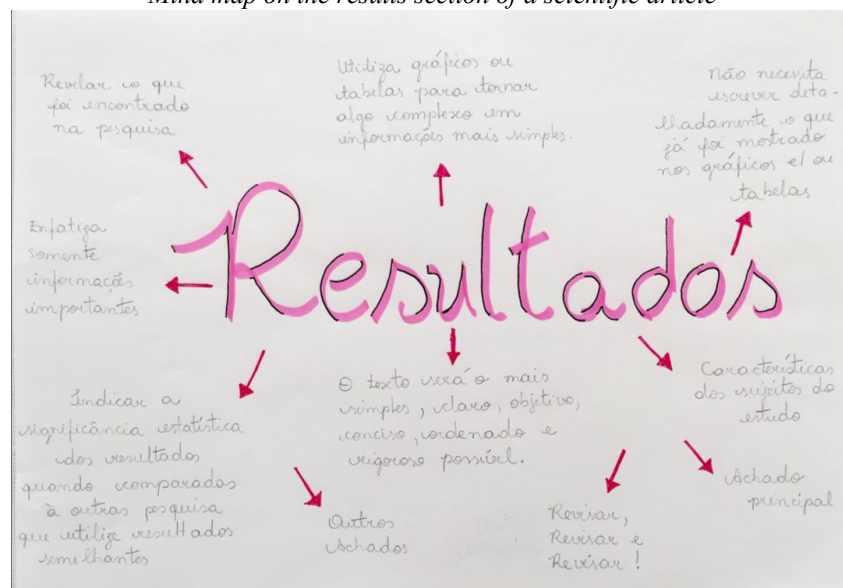 Mind map on the results section of a scientific article
Revelar o que
foi encontrado
na pesquisa
Utiliza gráficos ou
tabelas para tornar
algo complexo em
informações mais simples.
Não necessita
escrever deta-
lhadamente o que
já foi mostrado
nos gráficos e/ou
tabelas
Enfatiza
somente
informações
importantes
Resultados
Indicar a
significância estatística
dos resultados
quando comparados
à outras pesquisa
que utilize resultados
semelhantes
O texto será o mais
simples, claro, objetivo,
conciso, ordenado e
rigoroso possível.
Características
dos sujeitos do
estudo
Achado
principal
Outros
Achados
Revisar,
Revisar e
Revisar!